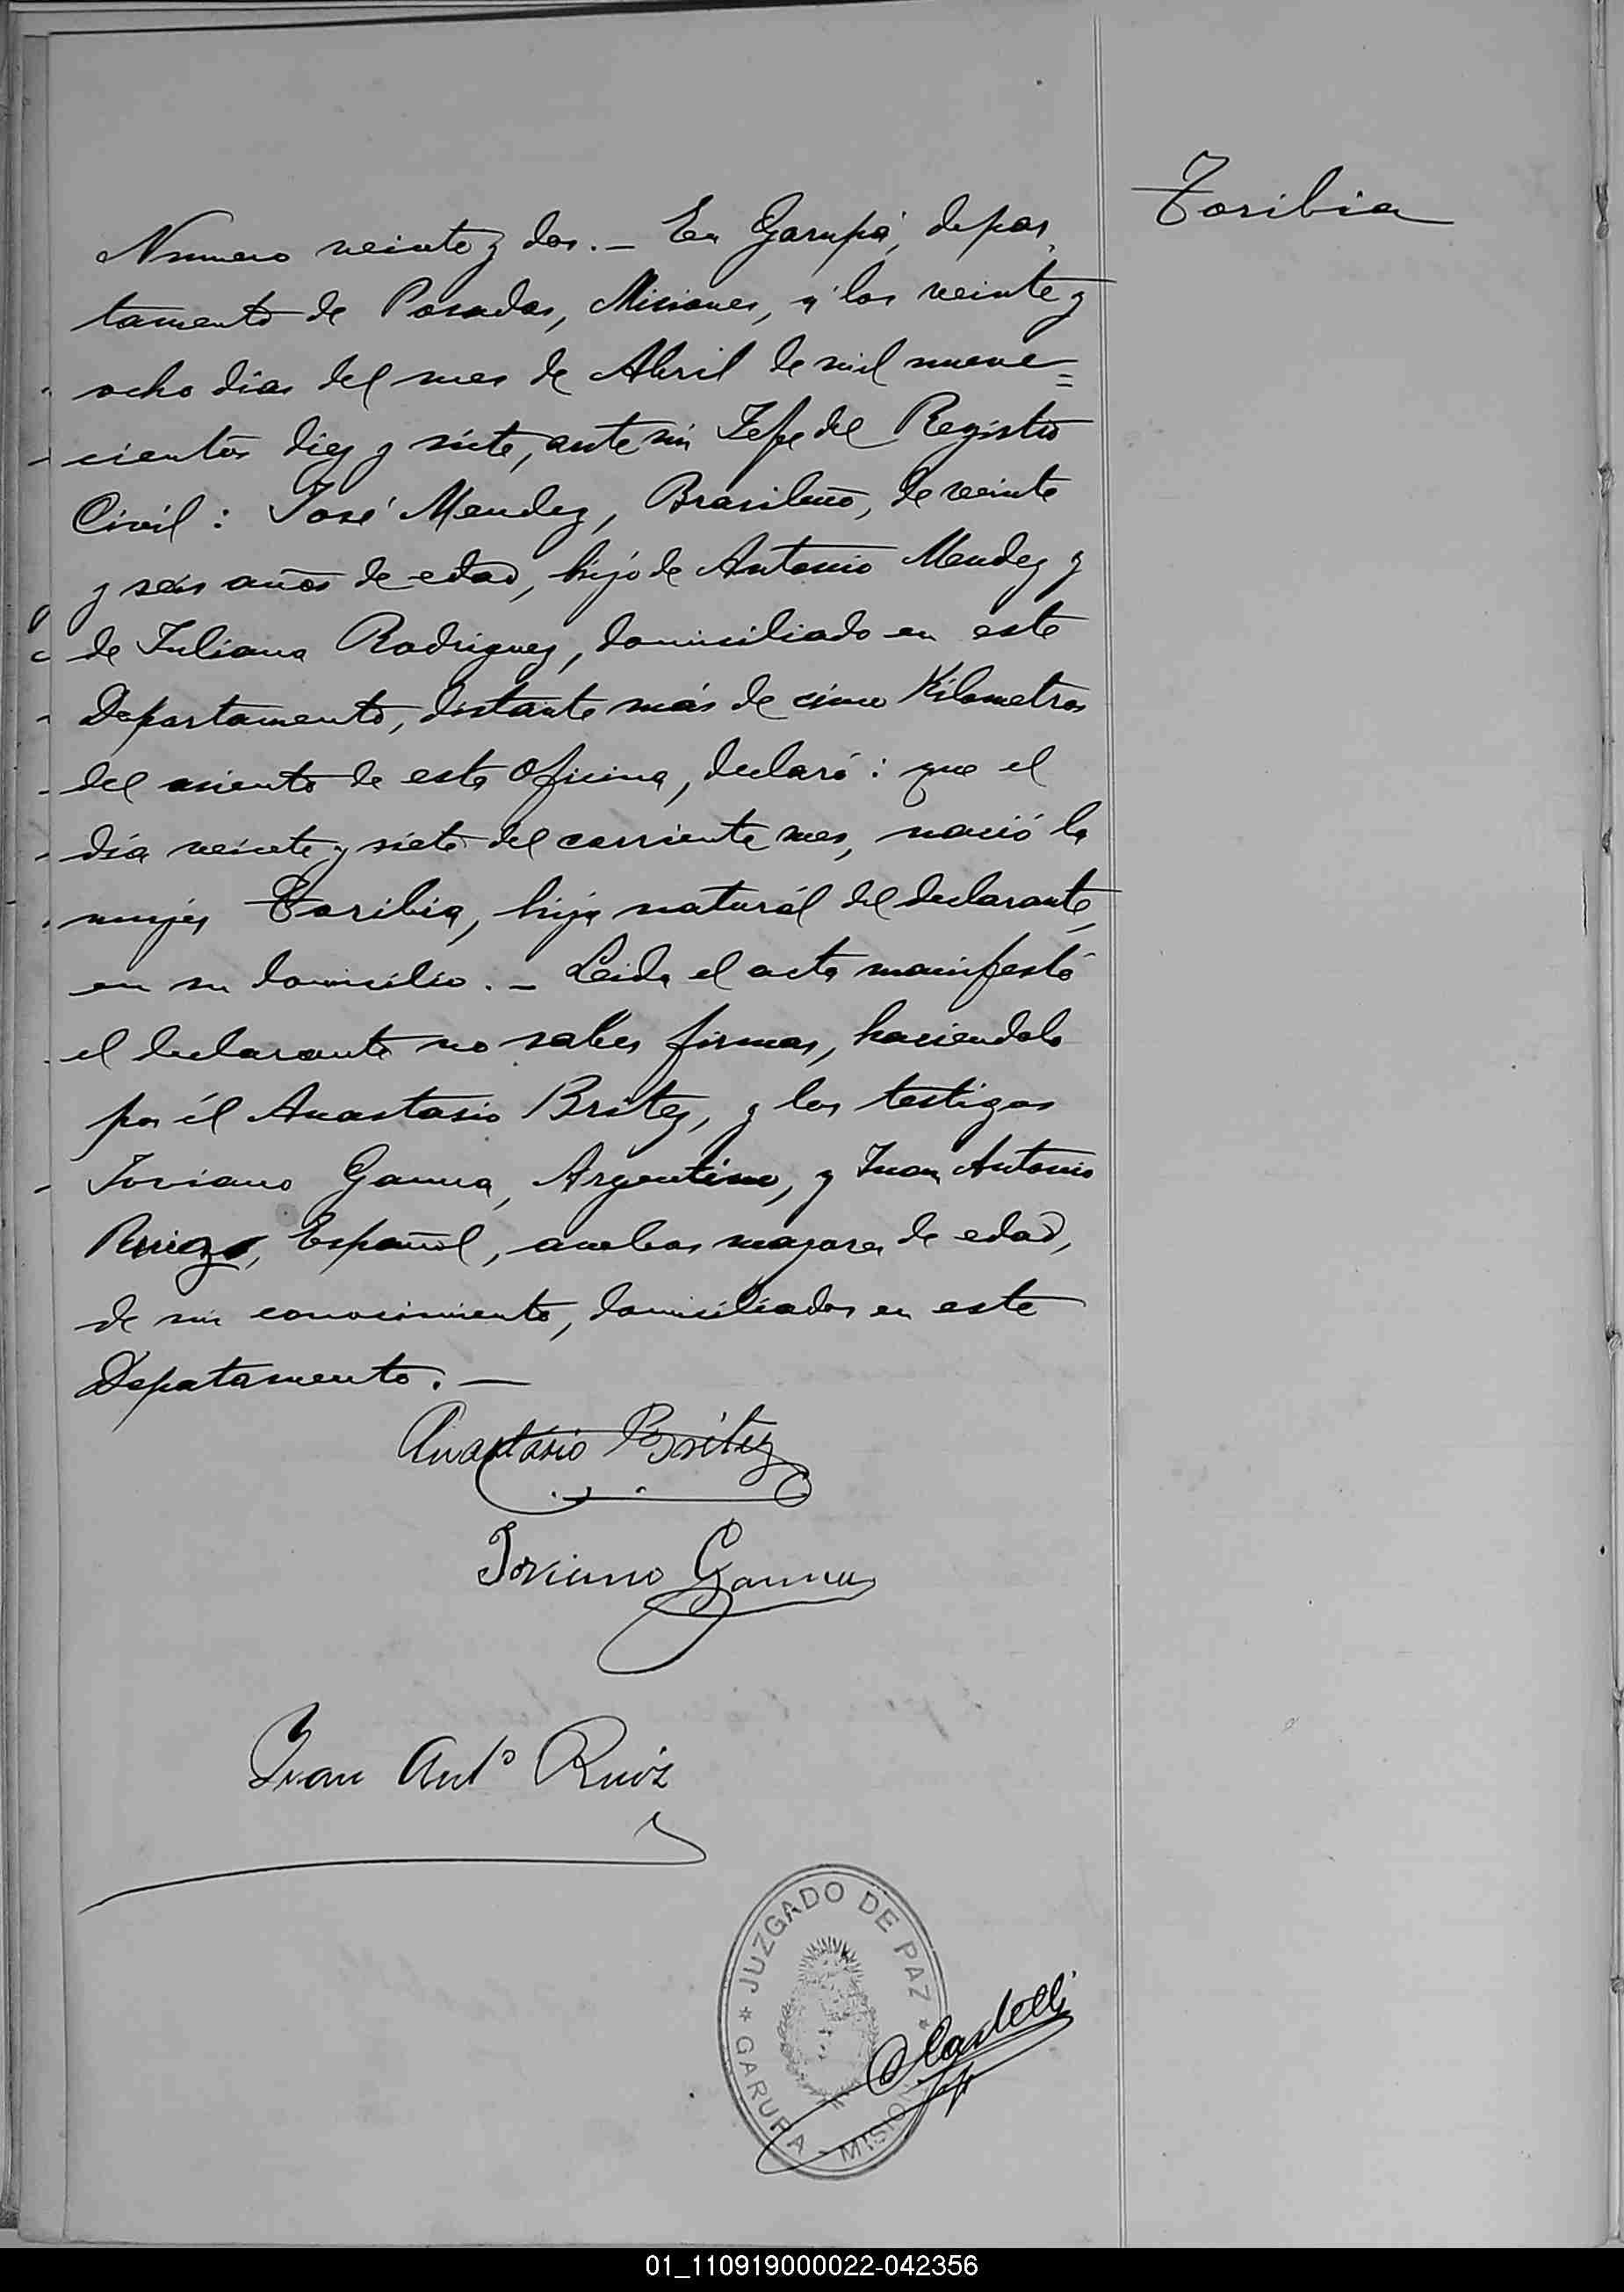 Toribia
Numero veinte y dos. _ En Garupá, depar
tamento de Posadas, Misiones, á los veinte y
ocho dias del mes de Abril de mil nueve=
cientos diez y siete, ante mi Jefe del Registro
Civil: José Mendez, Brasileño, de veinte
y seis años de edad, hijo de Antonio Mendez y
de Juliana Rodriguez, domiciliado en este
Departamento, distante más de cinco Kilometros
del asiento de esta Oficina, declaró: que el
día veinte y siete del corriente mes, nació la
mujer Toribia, hija naturál del declarante,
en su domicilio. _ Leida el acta manifestó
el declarante no saber firmar, haciendolo
por él Anastasio Britez, y los testigos
Joviano Gauna, Argentino, y Juan Antonio
Ruiz, Español, ambos mayores de edad,
de mi conocimiento, domiciliados en este
Depatamento. _
Anastásio Britez
Joviano Gauna
Juan Antº Ruiz
JUZGADO DE PAZ
Castelli
Jefe
GARUPA - MISIONES
01_110919000022-042356